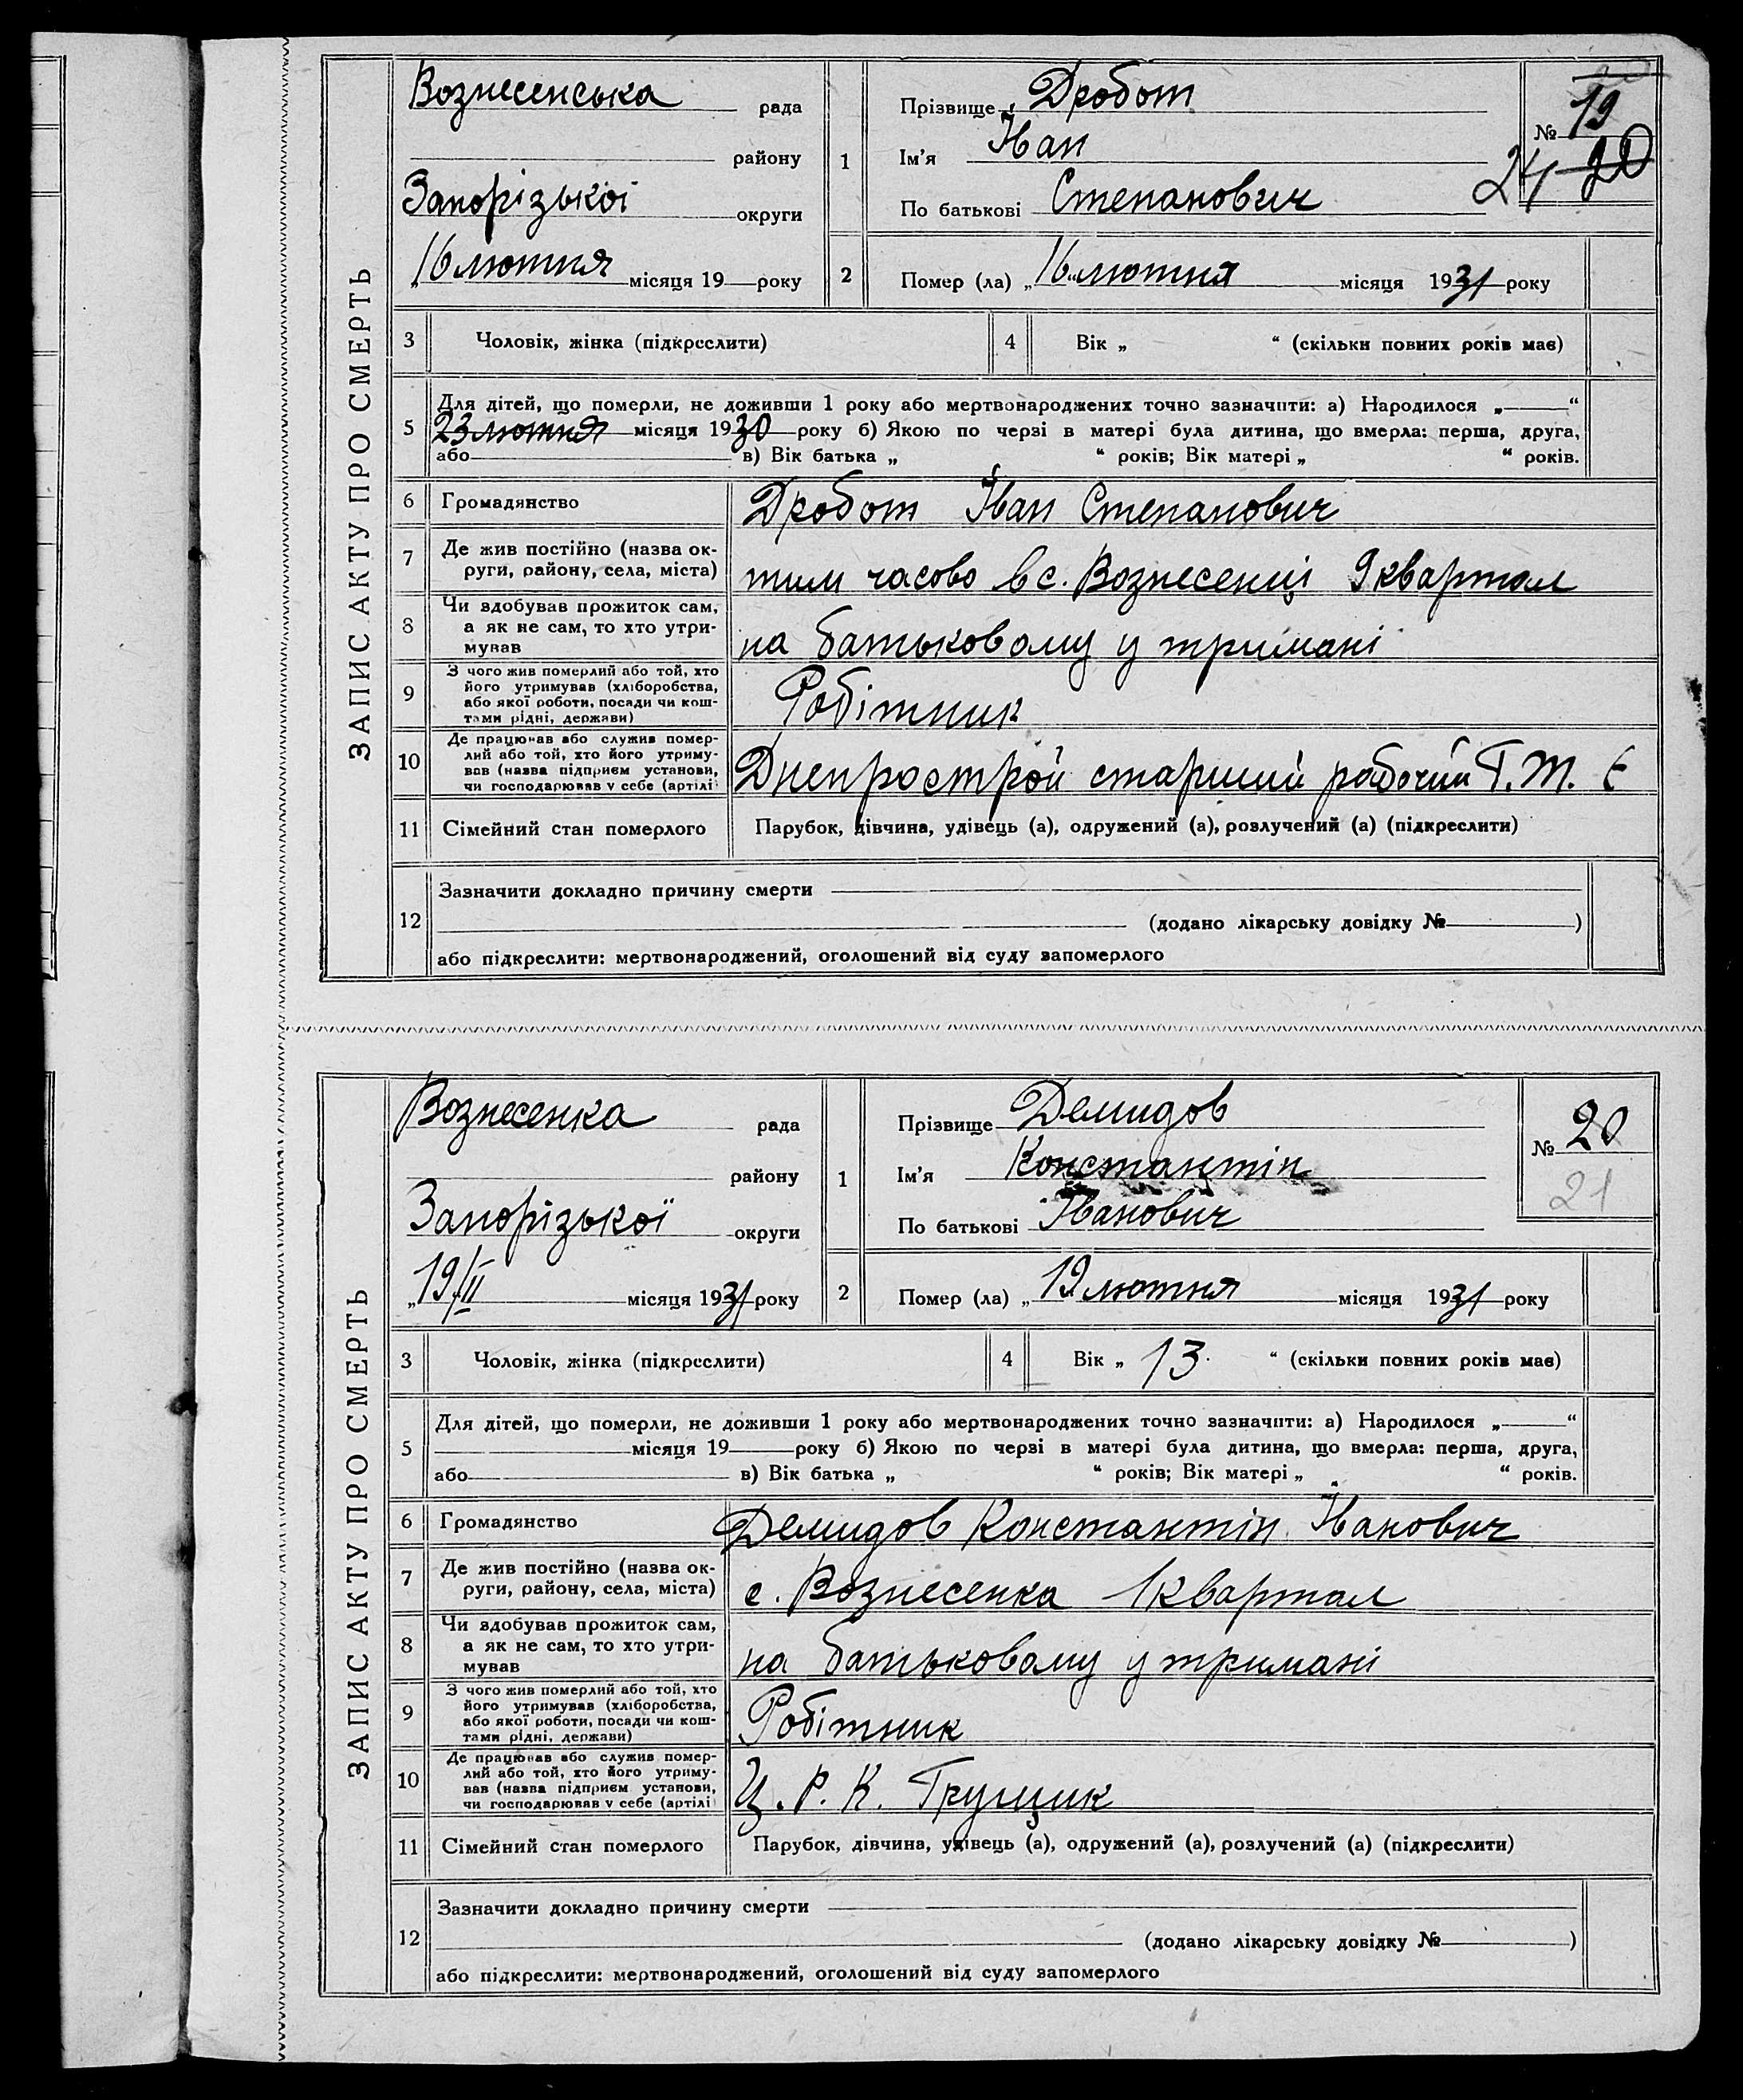 ЗАПИС АКТУ ПРО СМЕРТЬ
Вознесенська рада
району
Запорізької округи
„16 лютня місяця 19 року
1
Прізвище Дробот
Ім'я Іван
По батькові Степанович
№ 19
24 20
2
Помер (ла) „16 лютня місяця 1931 року
3 Чоловік, жінка (підкреслити)
4 Вік „ “ (скільки повних років має)
5 Для дітей, що померли, не доживши 1 року або мертвонароджених точно зазначити: а) Народилося „ “
23 лютня місяця 1930 року б) Якою по черзі в матері була дитина, що вмерла: перша, друга,
або в) Вік батька „ “ років; Вік матері „ “ років.
6 Громадянство Дробот Іван Степанович
7 Де жив постійно (назва ок-
руги, району, села, міста)
тим часово в с. Вознесенці 9 квартал
8 Чи здобував прожиток сам,
а як не сам, то хто утри-
мував
на батьковому у тримані
9 З чого жив померлий або той, хто
його утримував (хліборобства,
або якої роботи, посади чи кош-
тами рідні, держави)
Робітник
10 Де працював або служив помер-
лий або той, хто його утриму-
вав (назва підприєм установи,
чи господарював у себе (артілі
Днепрострой старший рабочий Т. Т.
11 Сімейний стан померлого Парубок, дівчина, удівець (а), одружений (а), розлучений (а) (підкреслити)
12 Зазначити докладно причину смерти
(додано лікарську довідку № )
або підкреслити: мертвонароджений, оголошений від суду запомерлого
ЗАПИС АКТУ ПРО СМЕРТЬ
Вознесенка рада
району
Запорізької округи
„19/II місяця 1931 року
1
Прізвище Демидов
Ім'я Константін
По батькові Іванович
№ 20
21
2
Помер (ла) „19 лютня місяця 1931 року
3 Чоловік, жінка (підкреслити)
4 Вік „ 13 “ (скільки повних років має)
5 Для дітей, що померли, не доживши 1 року або мертвонароджених точно зазначити: а) Народилося „ “
місяця 19 року б) Якою по черзі в матері була дитина, що вмерла: перша, друга,
або в) Вік батька „ “ років; Вік матері „ “ років.
6 Громадянство Демидов Константін Іванович
7 Де жив постійно (назва ок-
руги, району, села, міста)
с. Вознесенка 1 квартал
8 Чи здобував прожиток сам,
а як не сам, то хто утри-
мував
на батьковому у тримані
9 З чого жив померлий або той, хто
його утримував (хліборобства,
або якої роботи, посади чи кош-
тами рідні, держави)
Робітник
10 Де працював або служив помер-
лий або той, хто його утриму-
вав (назва підприєм установи,
чи господарював у себе (артілі
Ц. Р. К. Грущик
11 Сімейний стан померлого Парубок, дівчина, удівець (а), одружений (а), розлучений (а) (підкреслити)
12 Зазначити докладно причину смерти
(додано лікарську довідку № )
або підкреслити: мертвонароджений, оголошений від суду запомерлого